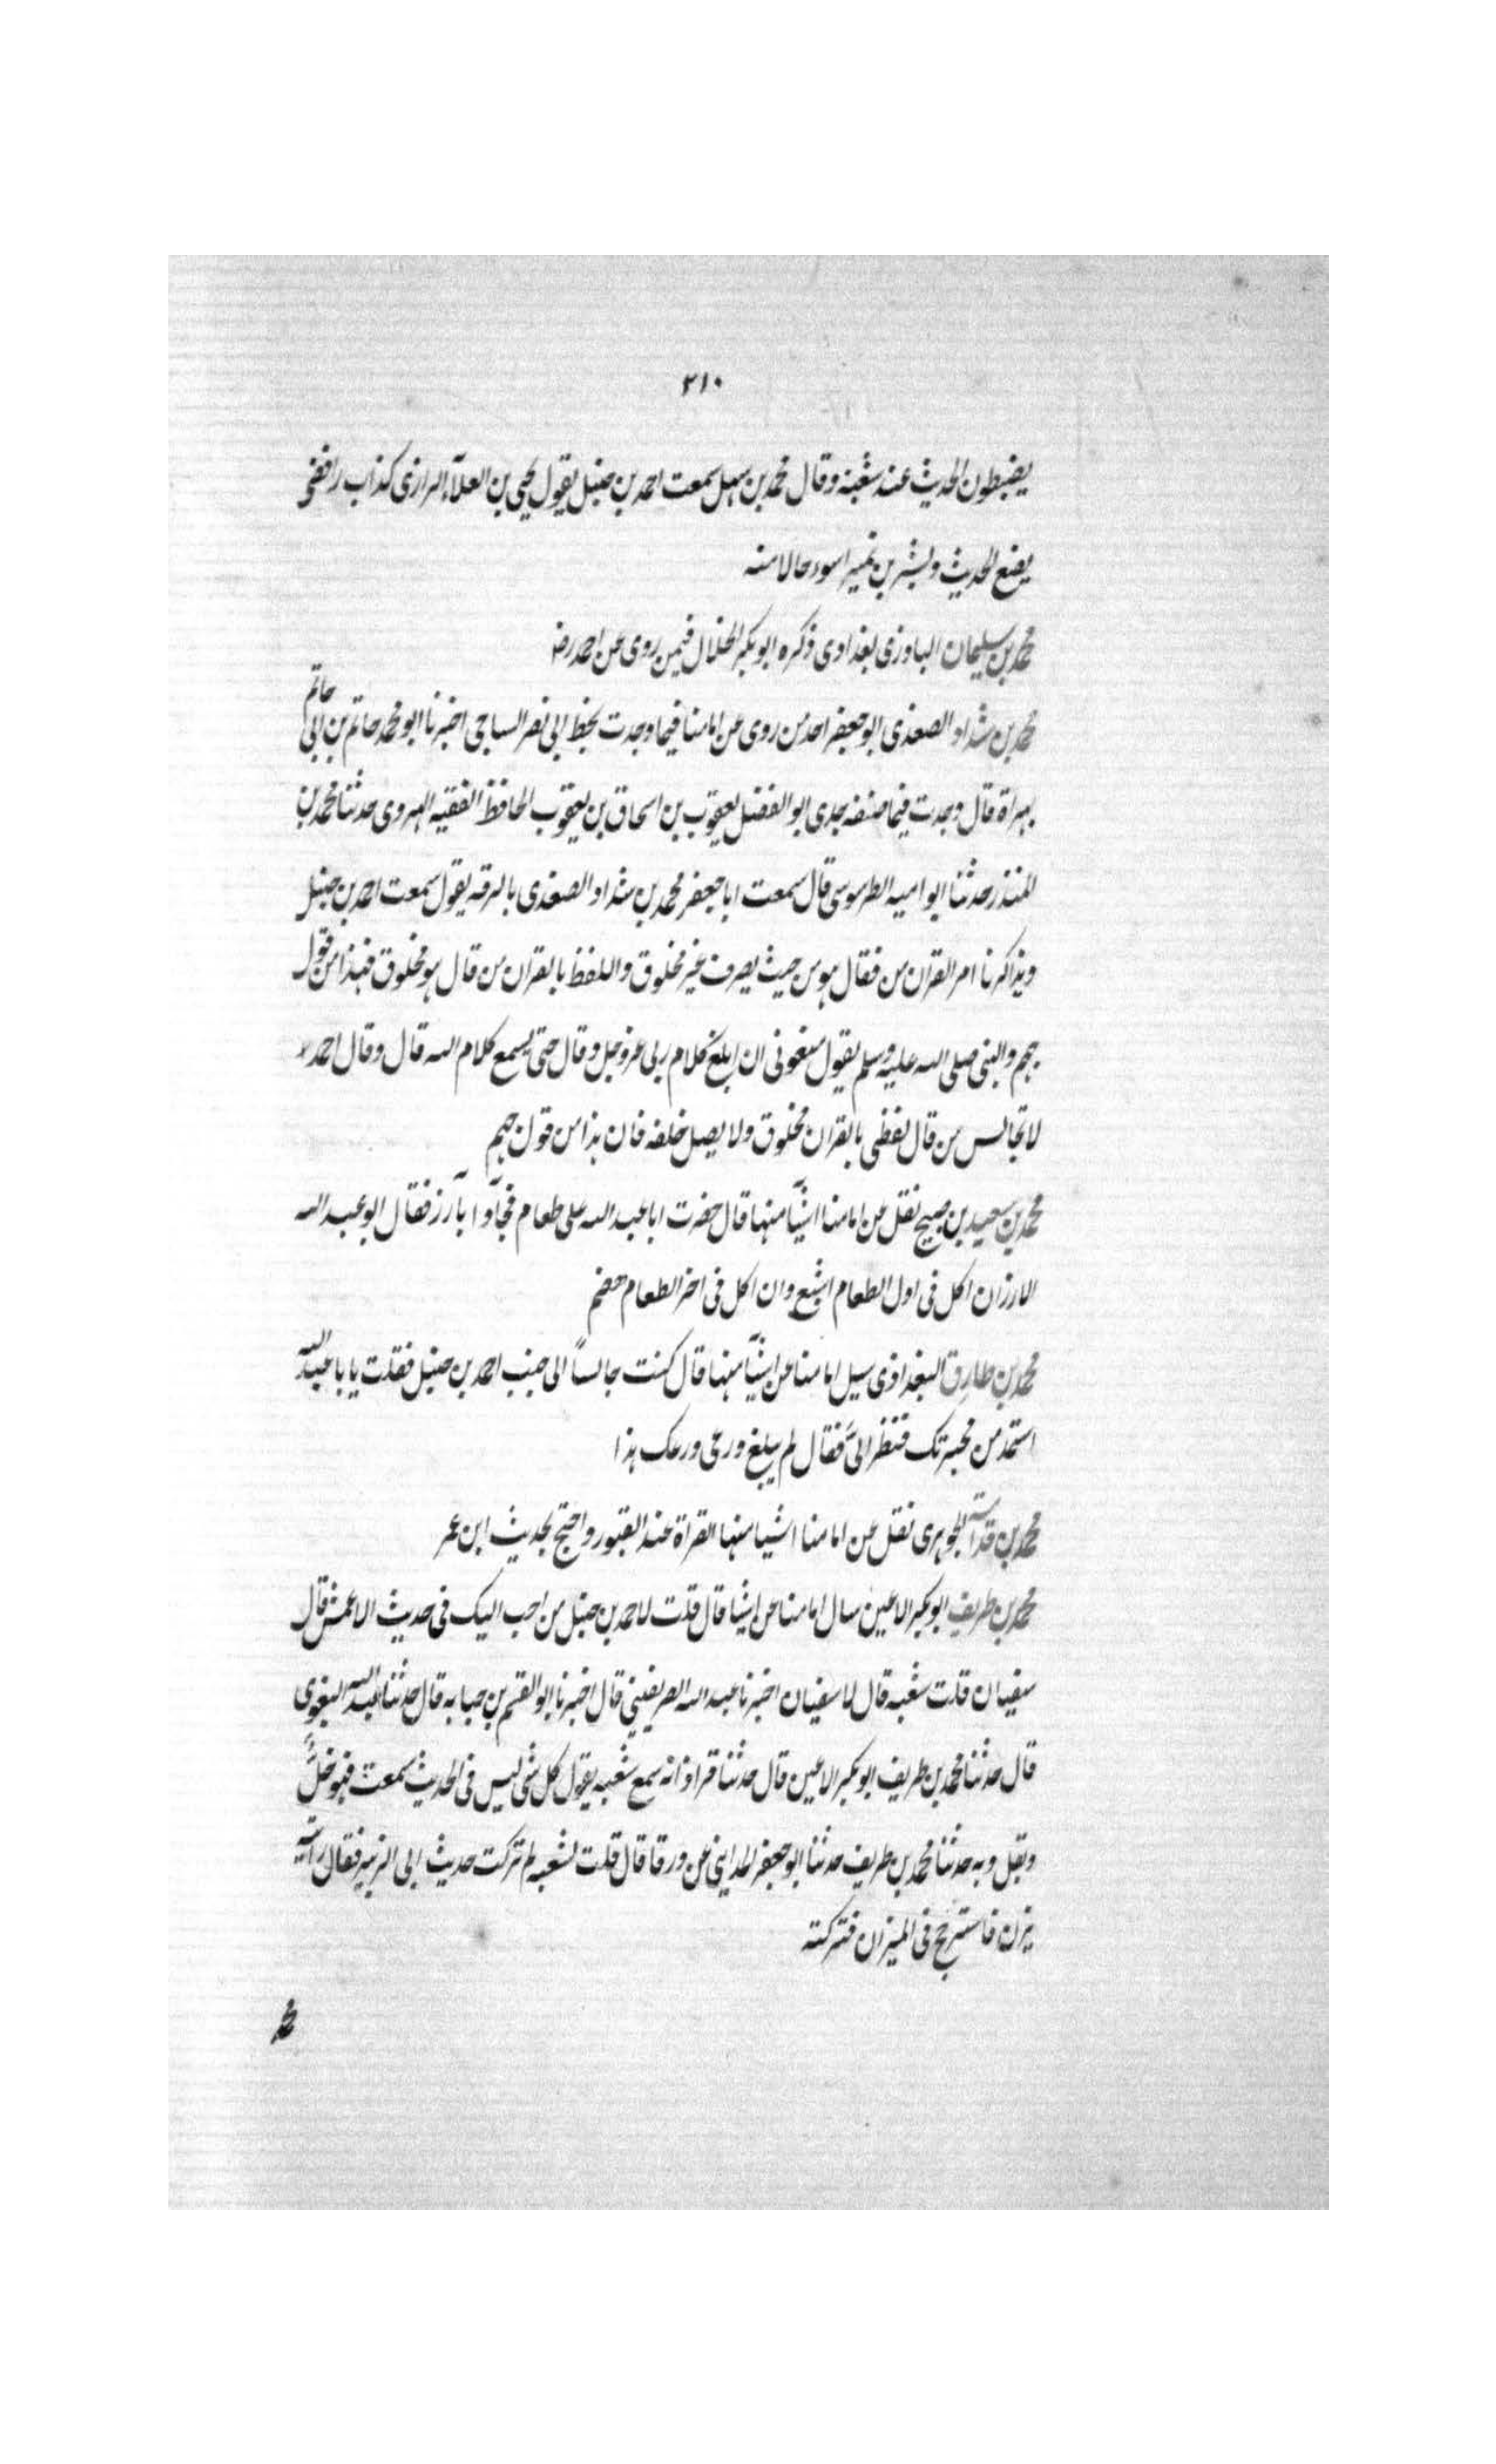 ٢١٠
يضبطون الحديث عند شعبة وقال محمد بن سهل سمعت احمد بن حنبل يقول يحيى بن العلآء الرازى كذاب رافضى
يضع الحديث وبشر بن نمير اسوء حالا منه
محمد بن سليمان الباوزى بغدادى ذكره ابو بكر الخلال فيمن روى عن احمد رضہ
محمد بن شداد الصغدى ابو جعفر احد من روى عن امامنا فيما وجدت بخط ابى نصر الساجى اخبرنا ابو محمد حاتم بن ابى حاتم
بهراة قال وجدت فيما صنفه جدى ابو الفضل يعقوب بن اسحاق بن يعقوب الحافظ الفقيه الهروى حدثنا محمد بن
المنذر حدثنا ابو اميه الطرسوسى قال سمعت ابا جعفر محمد بن شداد الصغدى بالرقه يقول سمعت احمد بن حنبل
وتذاكرنا امر القران من فقال هو من حيث يصرف غير مخلوق واللفظ بالقران من قال هو مخلوق فهذا من قول
جهم والنبى صلى الله عليه وسلم يقول منعونى ان ابلغ كلام ربى عز وجل وقال حتى يسمع كلام الله قال وقال احمد
لا تجالس من قال لفظى بالقران مخلوق ولا يصل خلفه فان هذا من قول جهم
محمد بن سعيد بن صبيح نقل عن امامنا اشيآ منها قال حضرت ابا عبد الله على طعام فجآوا بآرز فقال ابو عبد الله
الارز ان اكل فى اول الطعام اشبع وان اكل فى اخر الطعام هضم
محمد بن طارق البغدادى سيل امامنا عن اشيآ منها قال كنت جالساً الى جنب احمد بن حنبل فقلت يا با عبد الله
استمد من محبرتك فنظر الىَّ فقال لم يبلغ ورعى ورعك هذا
محمد بن قدامة الجوهرى نقل عن امامنا اشيا منها القراة عند القبور واحتج بحديث ابن عمر
محمد بن طريف ابو بكر الاعين سال امامنا عن اشيا قال قلت لاحمد بن حنبل من احب اليك فى حديث الاعمش قال
سفيان قلت شعبه قال لا سفيان اخبرنا عبد الله الصريفينى قال اخبرنا ابو القسم بن حبابه قال حدثنا عبد الله البغوى
قال حدثنا محمد بن طريف ابو بكر الاعين قال حدثنا قراد انه سمع شعبه يقول كل شى ليس فى الحديث سمعت فهو خلٌّ
وبقل وبه حدثنا محمد بن طريف حدثنا ابو جعفر المداينى عن ورقا قال قلت لشعبه لم تركت حديث ابى الزبير فقال رأيته
يزن فاسترجح فى الميزان فتركته
محمد